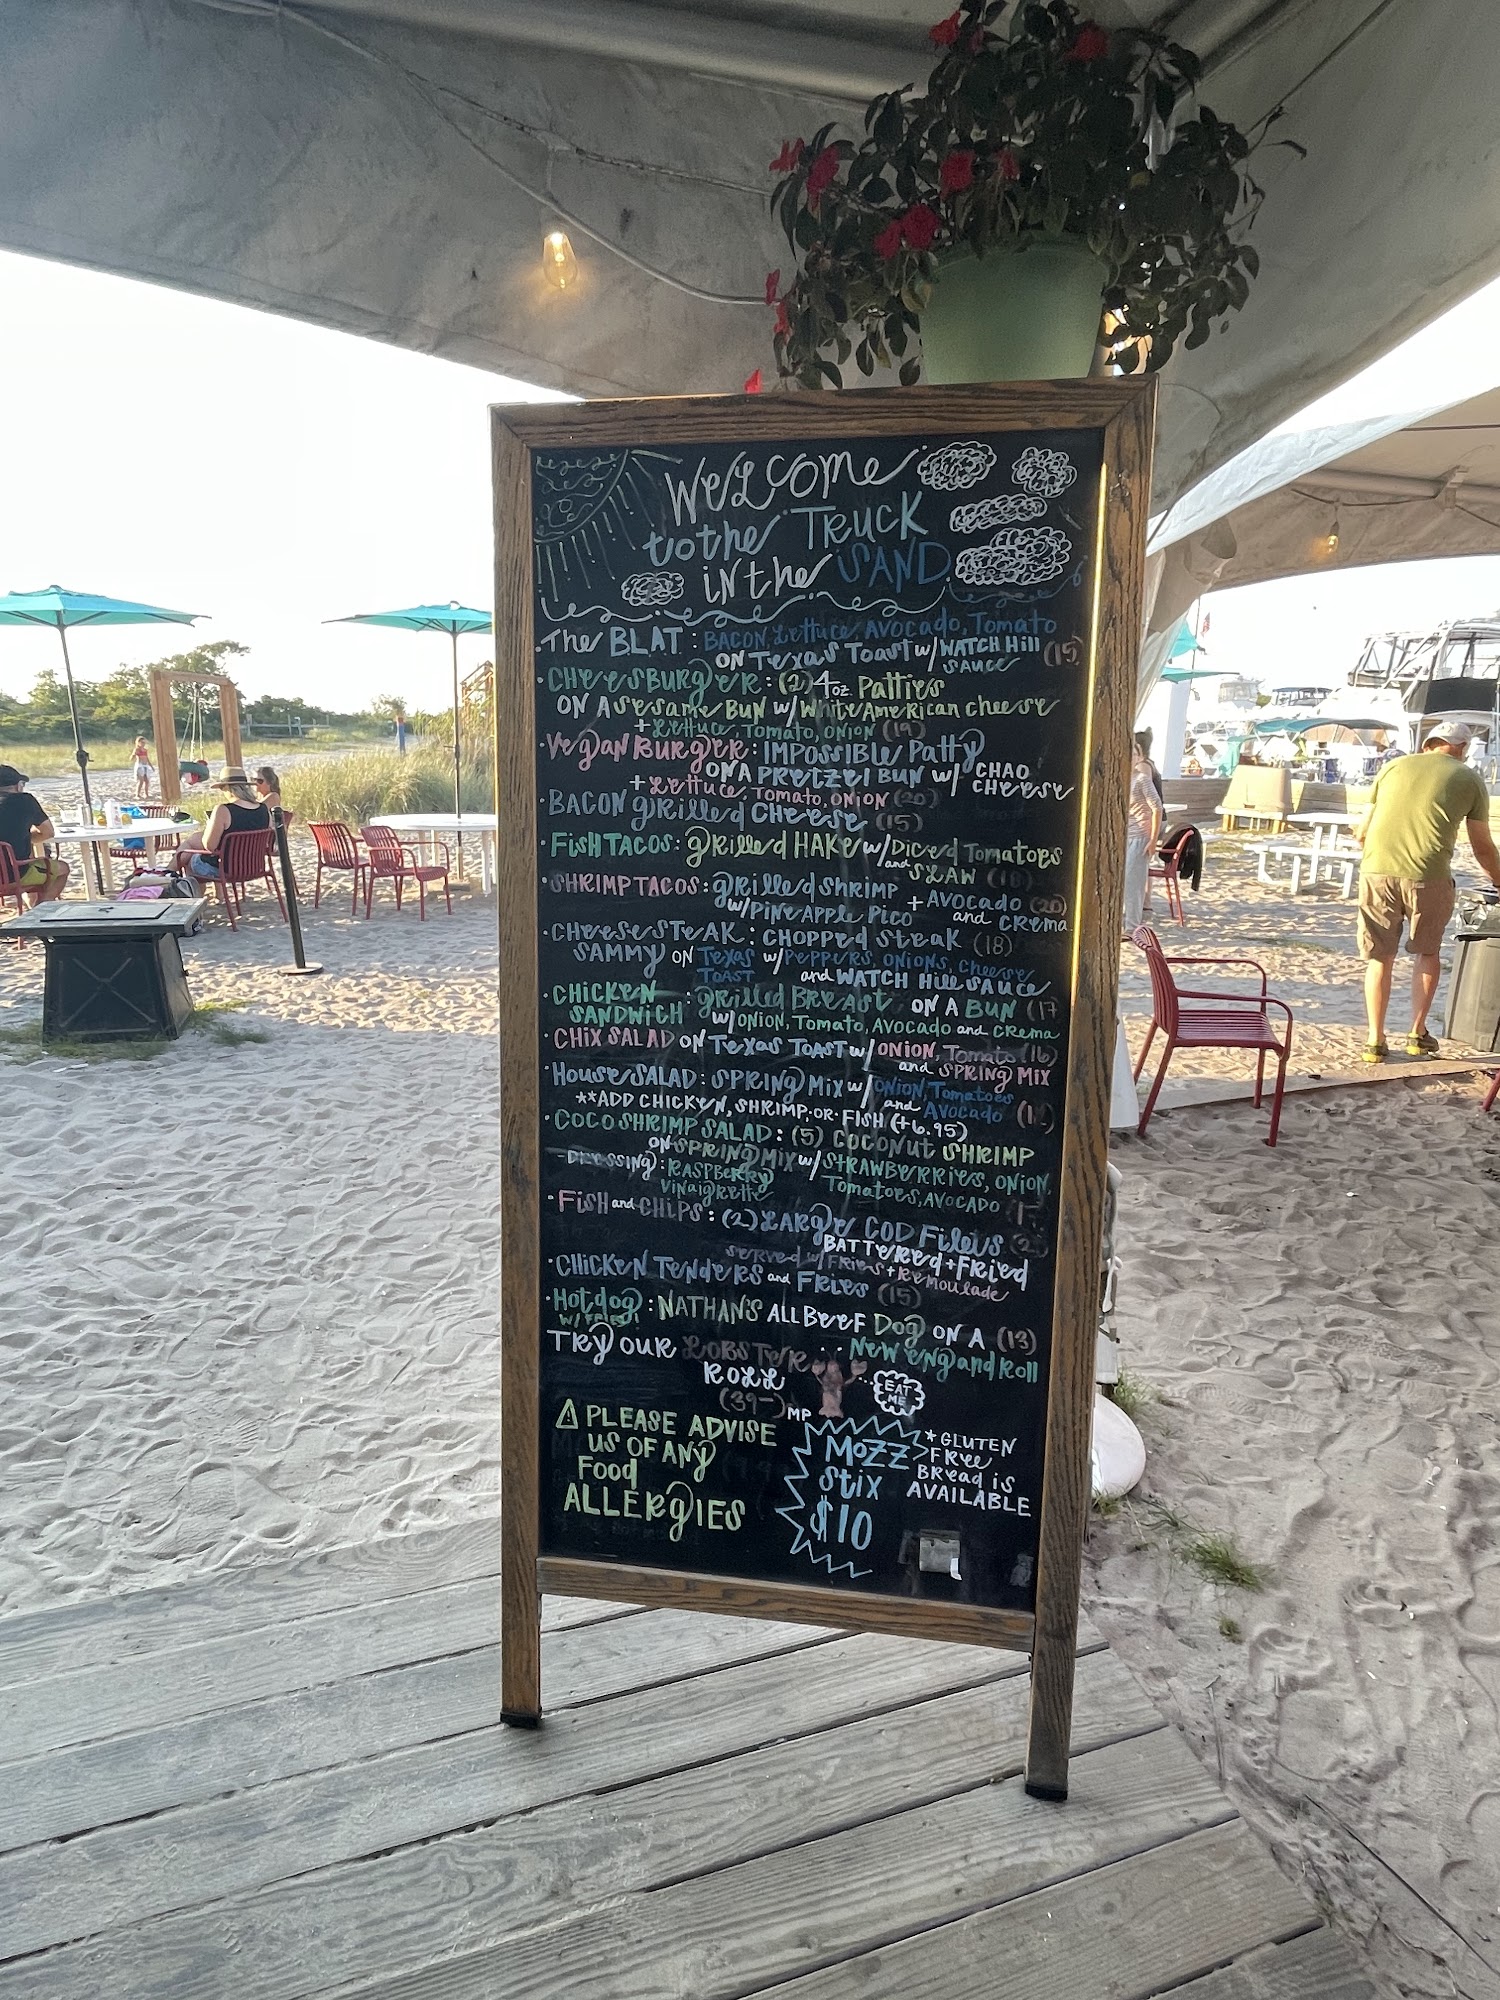 Welcome
to the TRUCK
in the SAND
The BLAT: BACON Lettuce, AVOCADO, Tomato
ON Texas Toast w/ WATCH Hill (15)
SAUCE
·CHEESBURGER: (2) 4oz. Patties
ON A Sesame BUN w/ White American cheese
+ Lettuce, Tomato, ONION (19)
·Vegan BURGER: IMPOSSIBLE Patty
ON A PRetzel BUN w/ CHAO
CHEESE
+ Lettuce, Tomato, ONION (20)
·BACON grilled CHEESE (15)
·FISH TACOS: grilled HAKE w/ Diced Tomatoes
and SLAW (18)
·SHRIMP TACOS: grilled Shrimp + AVOCADO (20)
w/ PineApple Pico and CREMA
·CHEESESTEAK: CHOPPED Steak (18)
SAMMY ON Texas w/ PEPPERS, ONIONS, Cheese
TOAST and WATCH Hill SAUCE
·CHICKEN : grilled BREAST ON A BUN (17
SANDWICH w/ ONION, Tomato, AVOCADO and CREMA
·CHIX SALAD ON TEXAS TOAST w/ ONION, Tomato (16)
and SPRING MIX
·House SALAD: SPRING MIX w/ ONION, Tomatoes
and AVOCADO
**ADD CHICKEN, SHRIMP, OR FISH (+6.95)
·COCO SHRIMP SALAD: (5) COCONUT SHRIMP
ON SPRING MIX w/ STRAWBERRIES, ONION,
DRESSING: RASPBERRY Tomatoes, AVOCADO
Vinaigrette
·FISH and CHIPS: (2) LARGE COD Filets
BATTERED + FRIED
SERVED w/ FRIES + REMOULADE
·CHICKEN TENDERS and FRIES (15)
·Hotdog: NATHAN'S ALL BEEF Dog ON A (13)
w/ FRIES! NEW England Roll
TRY OUR LOBSTER
ROLL EAT
ME
(39-) MP
⚠ PLEASE ADVISE
US OF ANY
Food
ALLERGIES
MOZZ
Stix
$10
*GLUTEN
FREE
BREAD is
AVAILABLE